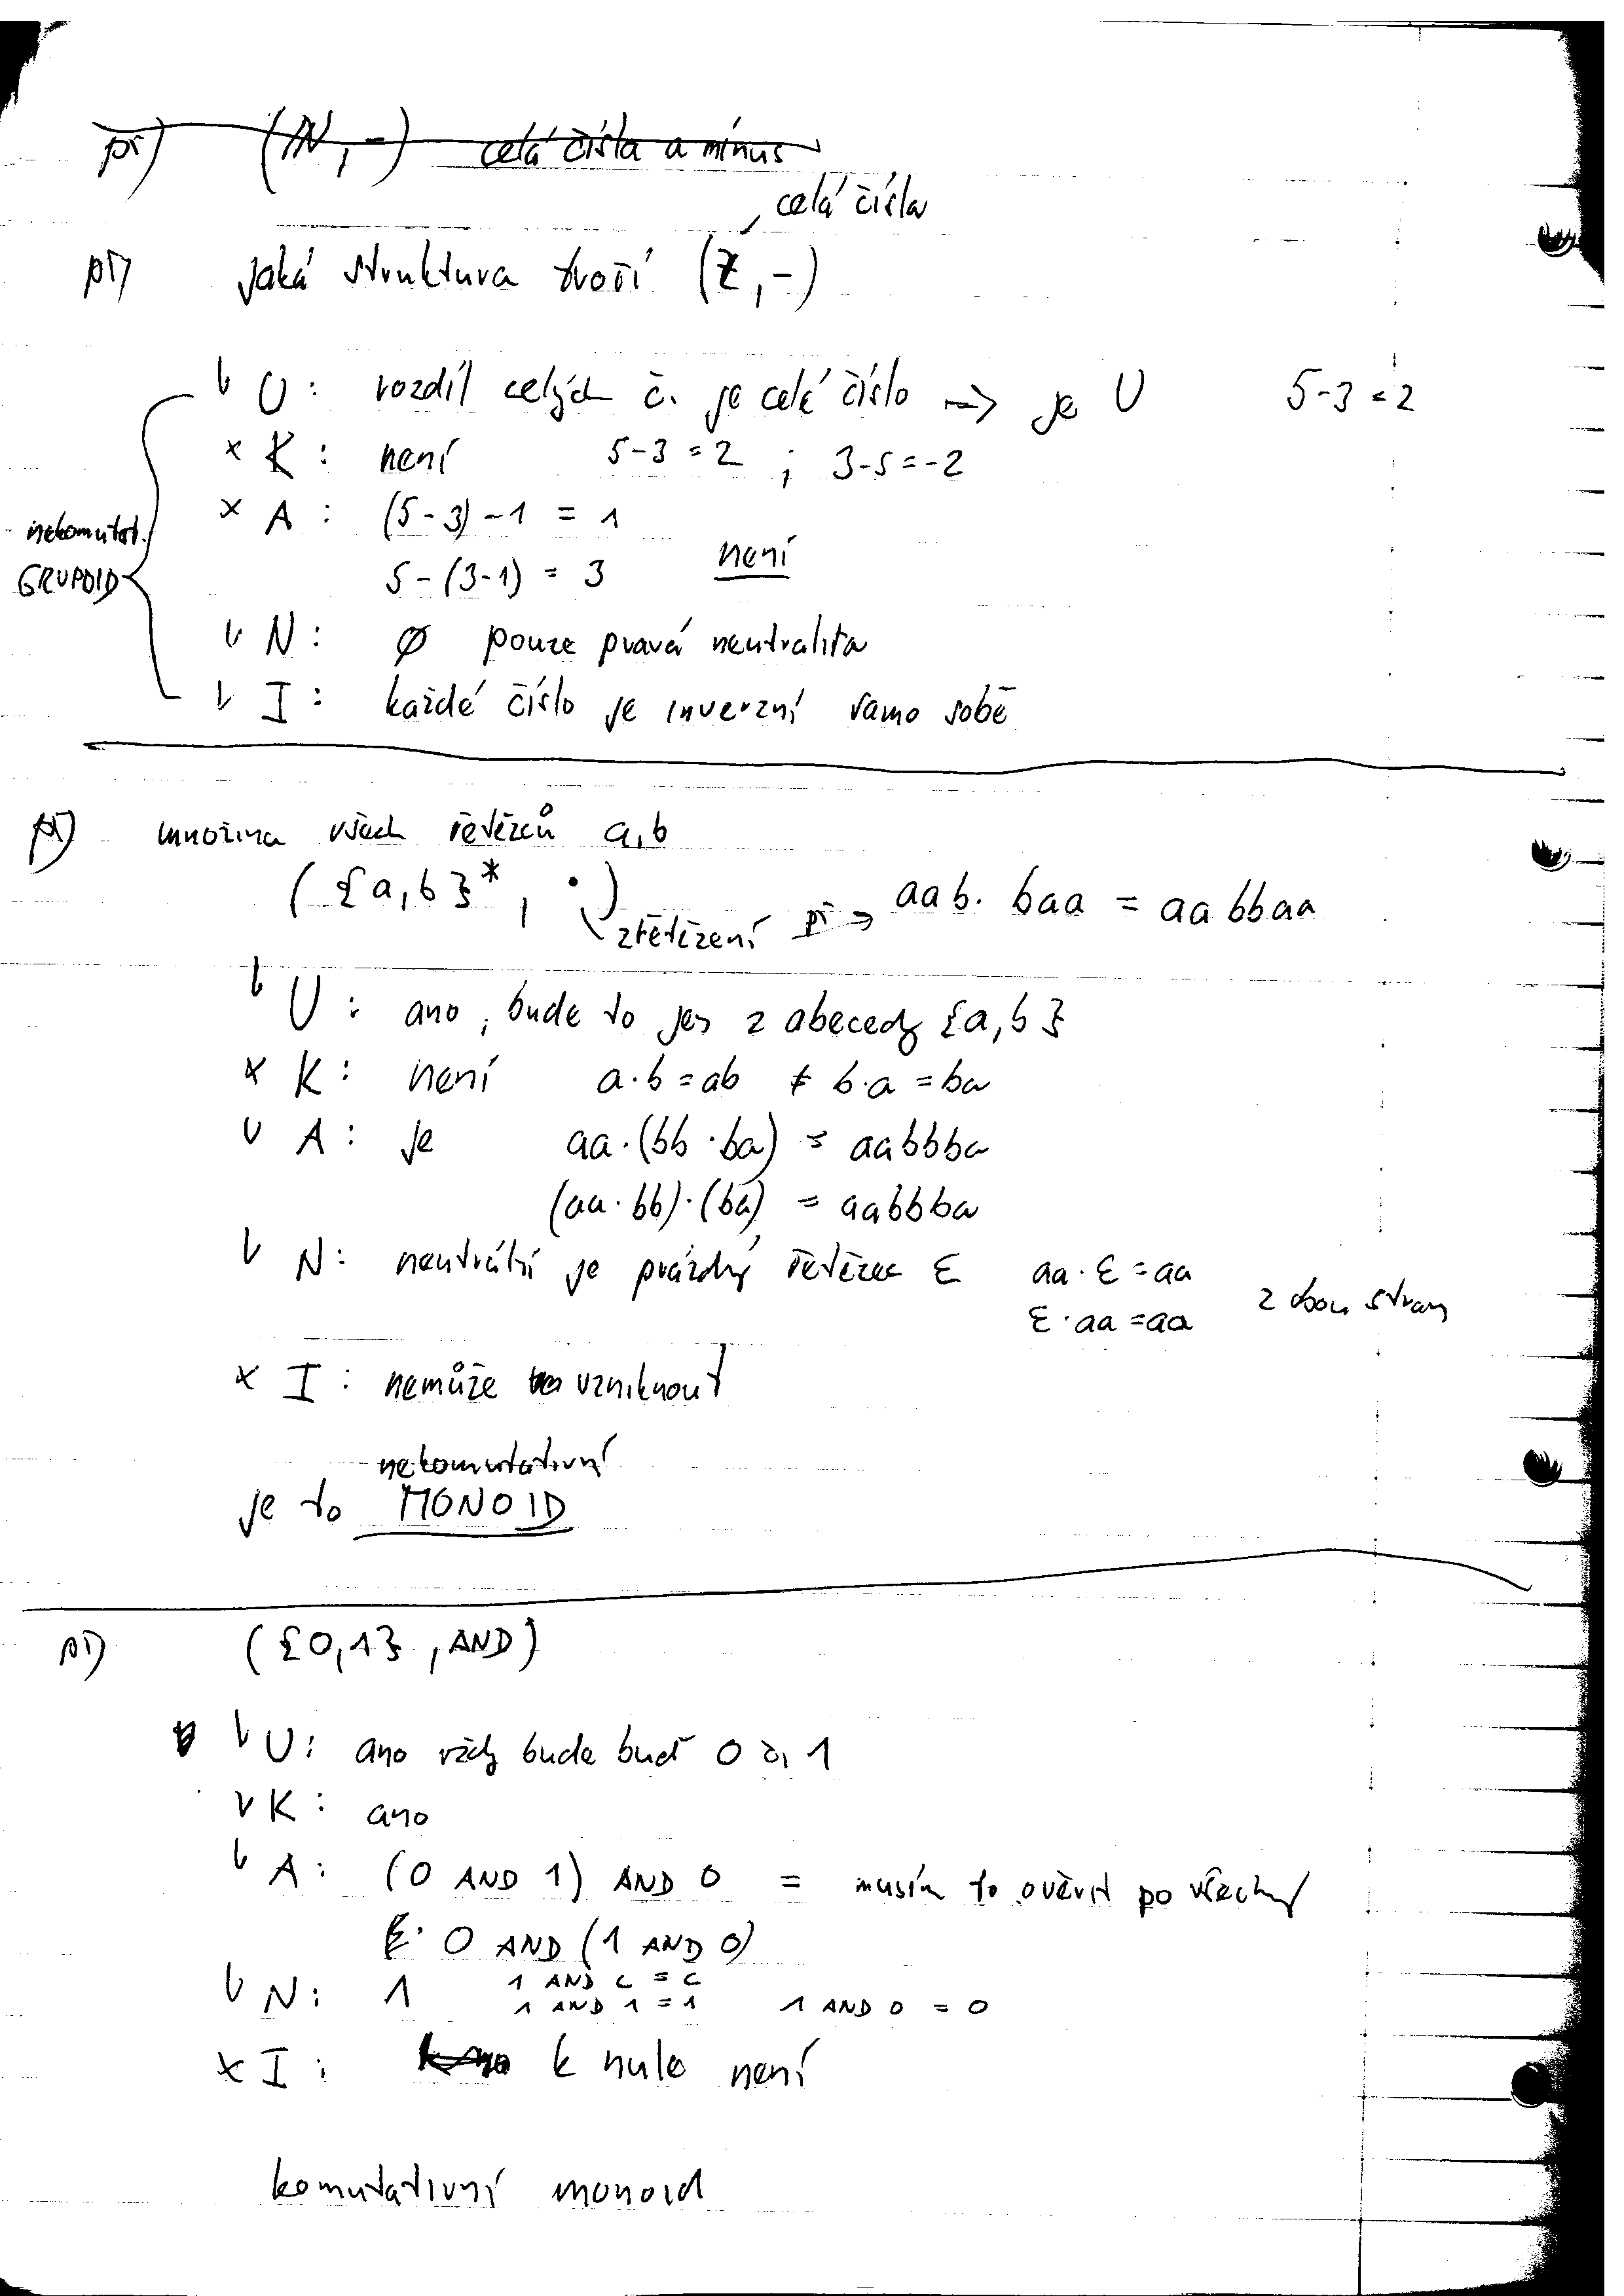 př) (N, -) celá čísla a mínus
celá čísla
př) jaká struktura tvoří (Z, -)
v U: rozdíl celých č. je celé číslo => je U 5-3=2
x K: není 5-3=2 ; 3-5=-2
x A: (5-3)-1 = 1
nekomutat.
5-(3-1) = 3 není
GRUPOID
v N: Ø pouze pravá neutralita
v I: každé číslo je inverzní samo sobě
př) množina všech řetězců a,b
({a,b}*, ·)
zřetězení př => aab. baa = aabbaa
v U: ano, bude to jen z abecedy {a,b}
x K: není a·b=ab ≠ b·a=ba
v A: je aa·(bb·ba) = aabbba
(aa·bb)·(ba) = aabbba
v N: neutrální je prázdný řetězec ε aa·ε=aa
ε·aa=aa z obou stran
x I: nemůže vzniknout
nekomutativní
je to MONOID
př) ({0,1}, AND)
v U: ano vždy bude buď 0 či 1
v K: ano
v A: (0 AND 1) AND 0 = musím to ověřit po všechny
0 AND (1 AND 0)
v N: 1 1 AND C = C
1 AND 1 = 1 1 AND 0 = 0
x I: k nule není
komutativní monoid